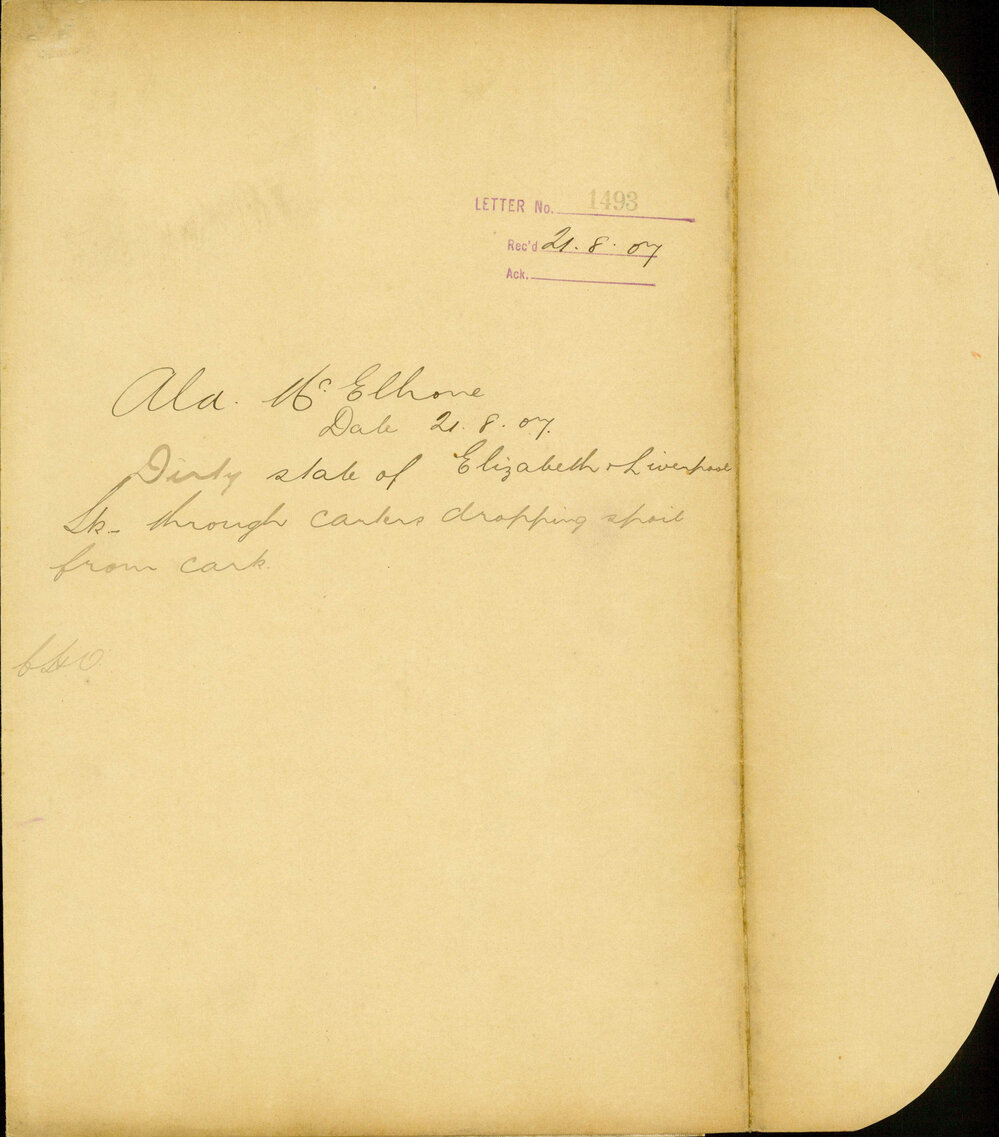 LETTER No. 1493
Rec'd 21. 8. 07
Ack.
Ald. Mc Elhone
Date 21. 8. 07.
Dirty state of Elizabeth & Liverpool
Sts - through carters dropping spoil
from carts.
CHO